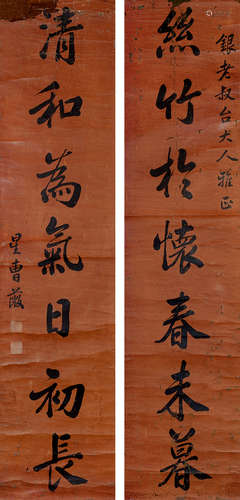 銀老叔台大人雅正
絲竹於懷春未暮
清和為氣日初長
星曹薇